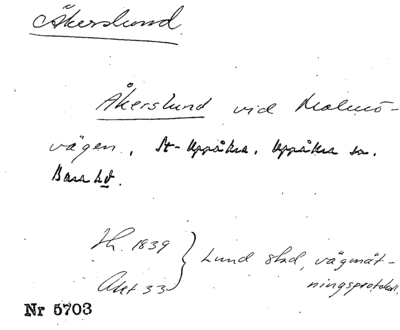 Åkerslund
Åkerslund vid Malmö-
vägen, St. Uppåkra, Uppåkra sn.
Bara hd.
1839 } Lund stad, vägmät-
Akt 33 ningsprotokoll.
Nr 5703